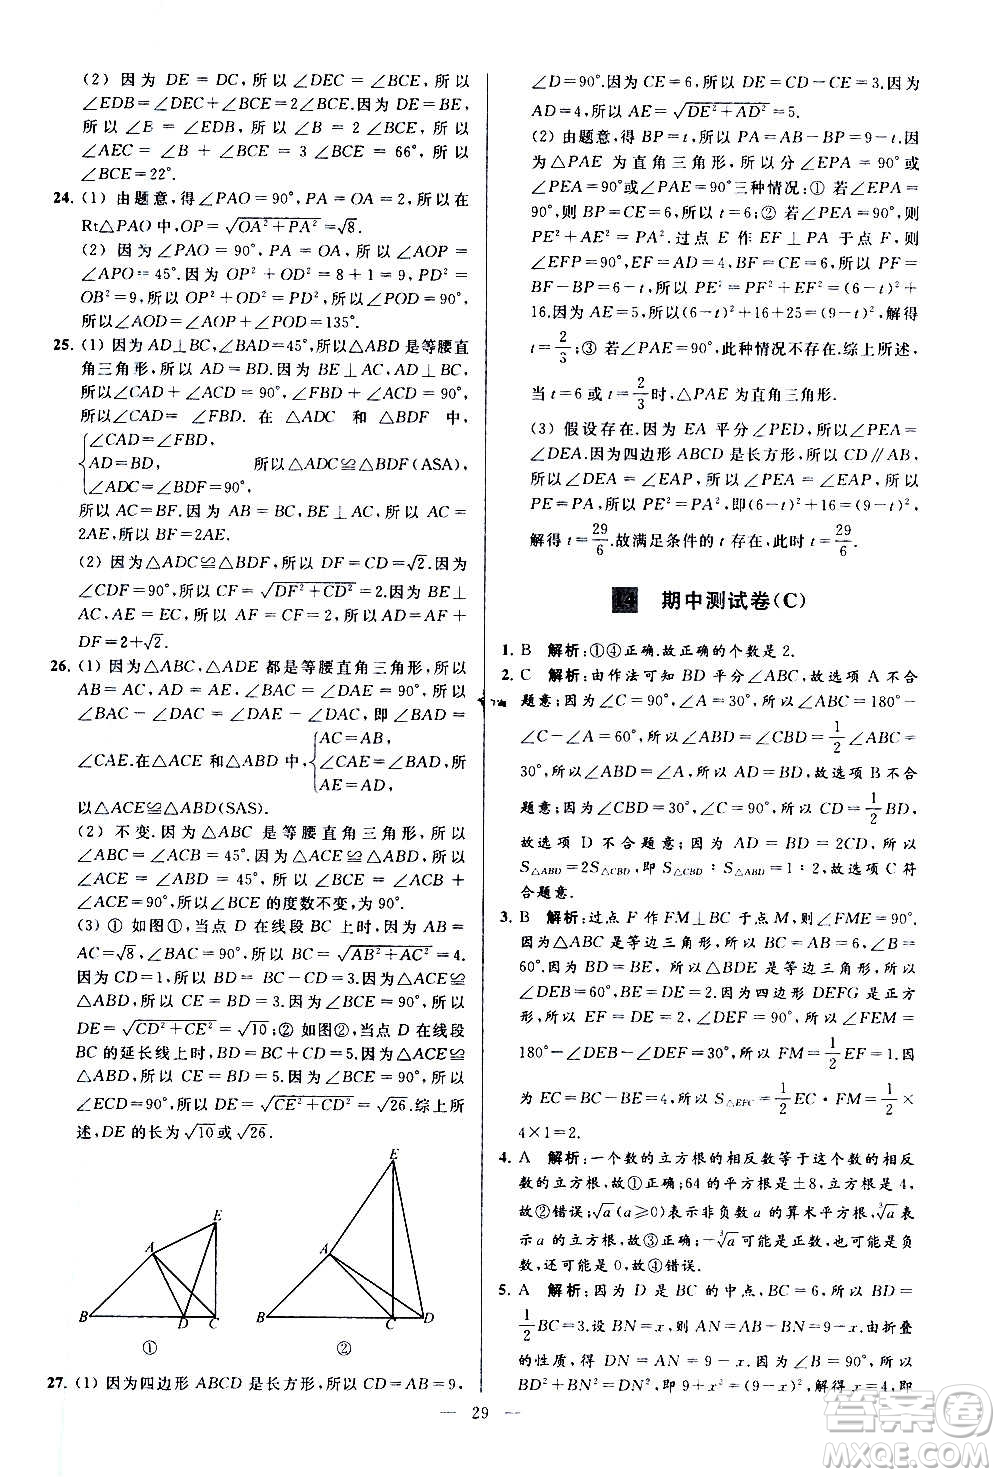 (2) 因为 DE=DC,所以∠DEC=∠BCE,所以
∠EDB=∠DEC+∠BCE=2∠BCE.因为DE=BE,
所以∠B=∠EDB,所以∠B=2∠BCE,所以
∠AEC=∠B+∠BCE=3∠BCE=66°,所以
∠BCE=22°.
24. (1) 由题意,得∠PAO=90°,PA=OA=2,所以在
Rt△PAO中,OP=√(OA²+PA²)=√8.
(2) 因为∠PAO=90°,PA=OA,所以∠AOP=
∠APO=45°.因为OP²+OD²=8+1=9,PD²=
OB²=9,所以OP²+OD²=PD²,所以∠POD=90°,
所以∠AOD=∠AOP+∠POD=135°.
25. (1) 因为AD⊥BC,∠BAD=45°,所以△ABD是等腰直
角三角形,所以AD=BD.因为BE⊥AC,AD⊥BC,
所以∠CAD+∠ACD=90°,∠FBD+∠ACD=90°,
所以∠CAD=∠FBD.在△ADC和△BDF中,
∠CAD=∠FBD,
AD=BD, 所以△ADC≌△BDF(ASA),
∠ADC=∠BDF=90°,
所以AC=BF.因为AB=BC,BE⊥AC,所以AC=
2AE,所以BF=2AE.
(2) 因为△ADC≌△BDF,所以DF=CD=√2.因为
∠CDF=90°,所以CF=√(DF²+CD²)=2.因为BE⊥
AC,AE=EC,所以AF=CF=2,所以AD=AF+
DF=2+√2.
26. (1) 因为△ABC,△ADE都是等腰直角三角形,所以
AB=AC,AD=AE,∠BAC=∠DAE=90°,所以
∠BAC-∠DAC=∠DAE-∠DAC,即∠BAD=
∠CAE.在△ACE和△ABD中,
AC=AB,
∠CAE=∠BAD,所
AE=AD,
以△ACE≌△ABD(SAS).
(2) 不变.因为△ABC是等腰直角三角形,所以
∠ABC=∠ACB=45°.因为△ACE≌△ABD,所以
∠ACE=∠ABD=45°,所以∠BCE=∠ACB+
∠ACE=90°,所以∠BCE的度数不变,为90°.
(3) ① 如图①,当点D在线段BC上时,因为AB=
AC=√8,∠BAC=90°,所以BC=√(AB²+AC²)=4.
因为CD=1,所以BD=BC-CD=3.因为△ACE≌
△ABD,所以CE=BD=3.因为∠BCE=90°,所以
DE=√(CD²+CE²)=√10;② 如图②,当点D在线段
BC的延长线上时,BD=BC+CD=5.因为△ACE≌
△ABD,所以CE=BD=5.因为∠BCE=90°,所以
∠ECD=90°,所以DE=√(CE²+CD²)=√26.综上所
述,DE的长为√10或√26.
E
A
B
D
C
①
E
A
B
C
D
②
27. (1) 因为四边形ABCD是长方形,所以CD=AB=9,
∠D=90°.因为CE=6,所以DE=CD-CE=3.因为
AD=4,所以AE=√(DE²+AD²)=5.
(2) 由题意,得BP=t,所以PA=AB-BP=9-t.因
为△PAE为直角三角形,所以分∠EPA=90°或
∠PEA=90°三种情况:① 若∠EPA=
90°,则BP=CE=6,所以t=6;② 若∠PEA=90°,则
PE²+AE²=PA².过点E作EF⊥PA于点F,则
∠EFP=90°,所以EF=AD=4,BF=6,所以PF=
BF-BP=6-t,所以PE²=PF²+EF²=(6-t)²+
16.因为AE=5,所以(6-t)²+16+25=(9-t)²,解得
t=2/3;③ 若∠PAE=90°,此种情况不存在.综上所述,
当t=6或t=2/3时,△PAE为直角三角形.
(3) 假设存在.因为EA平分∠PED,所以∠PEA=
∠DEA.因为四边形ABCD是长方形,所以CD∥AB,
所以∠DEA=∠EAP,所以∠PEA=∠EAP,所以
PE=PA,所以PE²=PA²,即(6-t)²+16=(9-t)²,
解得t=29/6.故满足条件的t存在,此时t=29/6.
14 期中测试卷(C)
1. B 解析:①④正确.故正确的个数是2.
2. C 解析:由作法可知BD平分∠ABC,故选项A不合
题意;因为∠C=90°,∠A=30°,所以∠ABC=180°-
∠C-∠A=60°,所以∠ABD=∠CBD=1/2∠ABC=
30°,所以∠ABD=∠A,所以AD=BD,故选项B不合
题意;因为∠CBD=30°,∠C=90°,所以CD=1/2BD,
故选项D不合题意;因为AD=BD=2CD,所以
S△ABD=2S△CBD,即S△CBD:S△ABD=1:2,故选项C符
合题意.
3. B 解析:过点F作FM⊥BC于点M,则∠FME=90°.
因为△ABC是等边三角形,所以BC=AB=6,∠B=
60°.因为BD=BE,所以△BDE是等边三角形,所以
∠DEB=60°,BE=DE=2.因为四边形DEFG是正方
形,所以EF=DE=2,∠DEF=90°,所以∠FEM=
180°-∠DEB-∠DEF=30°,所以FM=1/2EF=1.因
为EC=BC-BE=4,所以S△EFC=1/2EC·FM=1/2×
4×1=2.
4. A 解析:一个数的立方根的相反数等于这个数的相反
数的立方根,故①正确;64的平方根是±8,立方根是4,
故②错误;√a(a≥0)表示非负数a的算术平方根,∛a表
示a的立方根,故③正确;-∛a可能是正数,可能是负
数,还可能是0,故④错误.
5. A 解析:因为D是BC的中点,BC=6,所以BD=
1/2BC=3.设BN=x,则AN=AB-BN=9-x,由折叠
的性质,得DN=AN=9-x.因为∠B=90°,所以
BD²+BN²=DN²,即9+x²=(9-x)²,解得x=4,即
— 29 —
答案圈
MXQE.COM